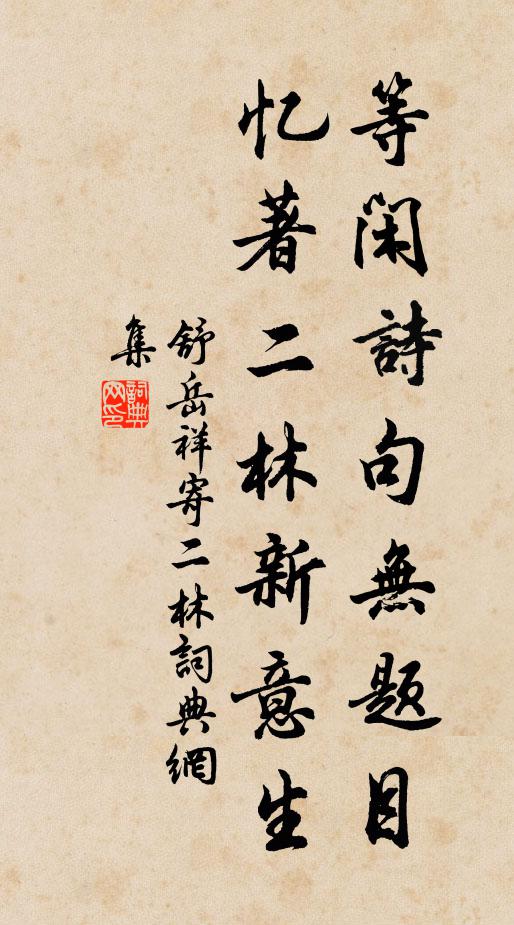 等闲詩句無题目
忆著二林新意生
舒岳祥寄二林詞典網
集
詞典网印